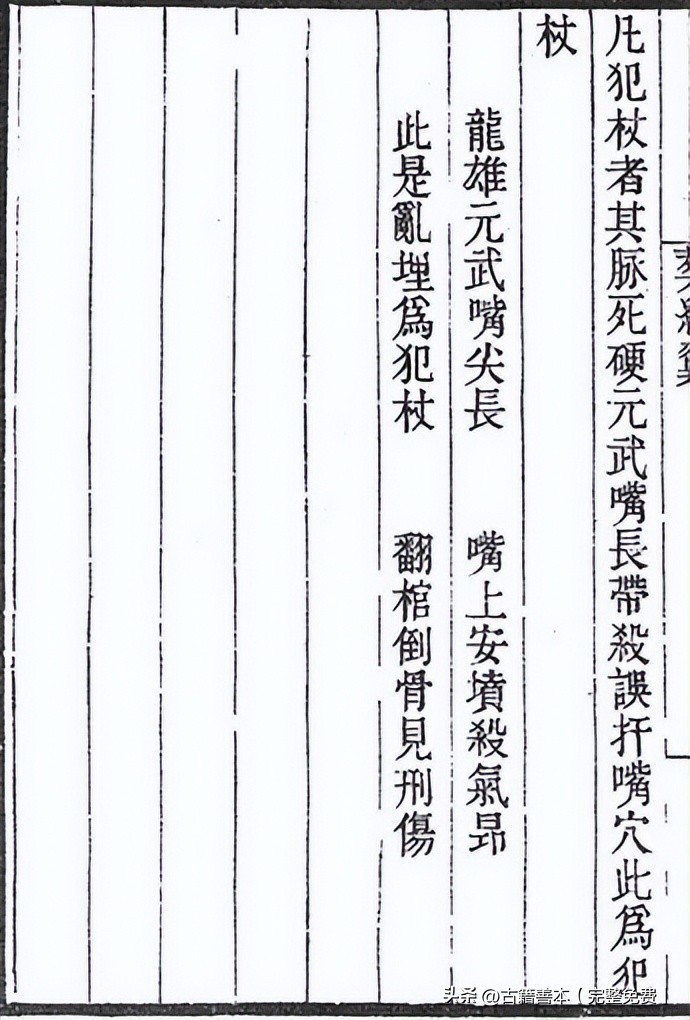 凡犯杖者其脉死硬元武嘴長帶殺誤扦嘴穴此爲犯
杖
龍雄元武嘴尖長　嘴上安墳殺氣昂
此是亂埋爲犯杖　翻棺倒骨見刑傷
头条 @古籍善本（完整免费